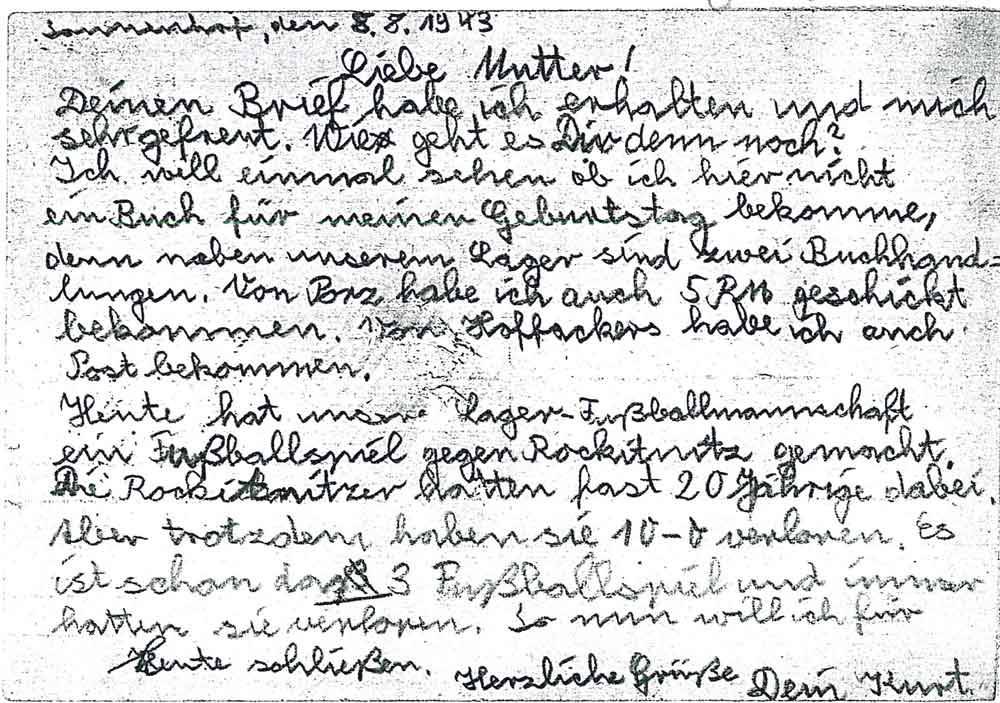 Sonnenhof, den 8.8.1943
Liebe Mutter!
Deinen Brief habe ich erhalten und mich
sehr gefreut. Wie geht es Dir denn noch?
Ich will einmal sehen ob ich hier nicht
ein Buch für meinen Geburtstag bekomme,
denn neben unserem Lager sind zwei Buchhand=
lungen. Von Porz habe ich auch 5 RM geschickt
bekommen. Von Hoffackers habe ich auch
Post bekommen.
Heute hat unsre Lager-Fußballmannschaft
ein Fußballspiel gegen Rockitnitz gemacht.
Die Rockitnitzer hatten fast 20 Jährige dabei.
Aber trotzdem haben sie 10-0 verloren. Es
ist schon das 3 Fußballspiel und immer
hatten sie verloren. So nun will ich für
Heute schließen. Herzliche Grüße Dein Kurt.